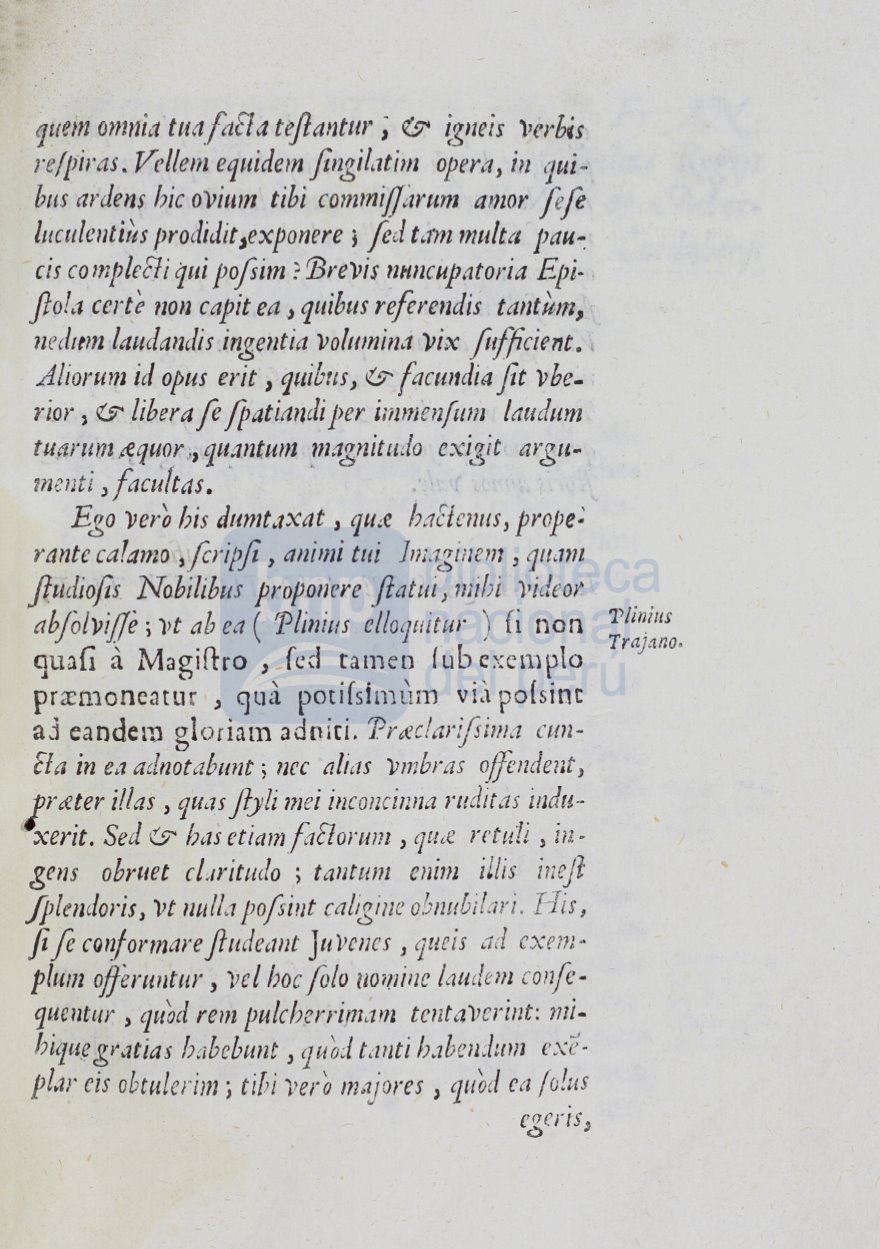 quem omnia tua facta testantur ; & igneis verbis
respiras. Vellem equidem singilatim opera, in qui-
bus ardens hic ovium tibi commissarum amor sese
luculentiùs prodidit, exponere ; sed tam multa pau-
cis complecti qui possim ? Brevis nuncupatoria Epi-
stola certè non capit ea, quibus referendis tantùm,
nedum laudandis ingentia volumina vix sufficient.
Aliorum id opus erit, quibus, & facundia sit vbe-
rior, & libera se spatiandi per immensum laudum
tuarum æquor, quantum magnitudo exigit argu-
menti, facultas.
Ego verò his dumtaxat, quæ hactenus, prope-
rante calamo, scripsi, animi tui Imaginem, quam
studiosis Nobilibus proponere statui, mihi videor
absolvissè ; vt ab ea ( Plinius elloquitur ) si non
quasi à Magistro, sed tamen sub exemplo
præmoneatur, quà potissimùm vià possint
ad eandem gloriam adniti. Præclarissima cun-
cta in ea adnotabunt ; nec alias vmbras offendent,
præter illas, quas styli mei inconcinna ruditas indu-
xerit. Sed & has etiam factorum, quæ retuli, in-
gens obruet claritudo ; tantum enim illis inest
splendoris, vt nulla possint caligine obnubilari. His,
si se conformare studeant Juvenes, queis ad exem-
plum offeruntur, vel hoc solo nomine laudem conse-
quentur, quòd rem pulcherrimam tentaverint: mi-
hique gratias habebunt, quòd tanti habendum exē-
plar eis obtulerim ; tibi verò majores, quòd ea solus
egeris,
Plinius
Trajano.
biblioteca
nacional
del perú